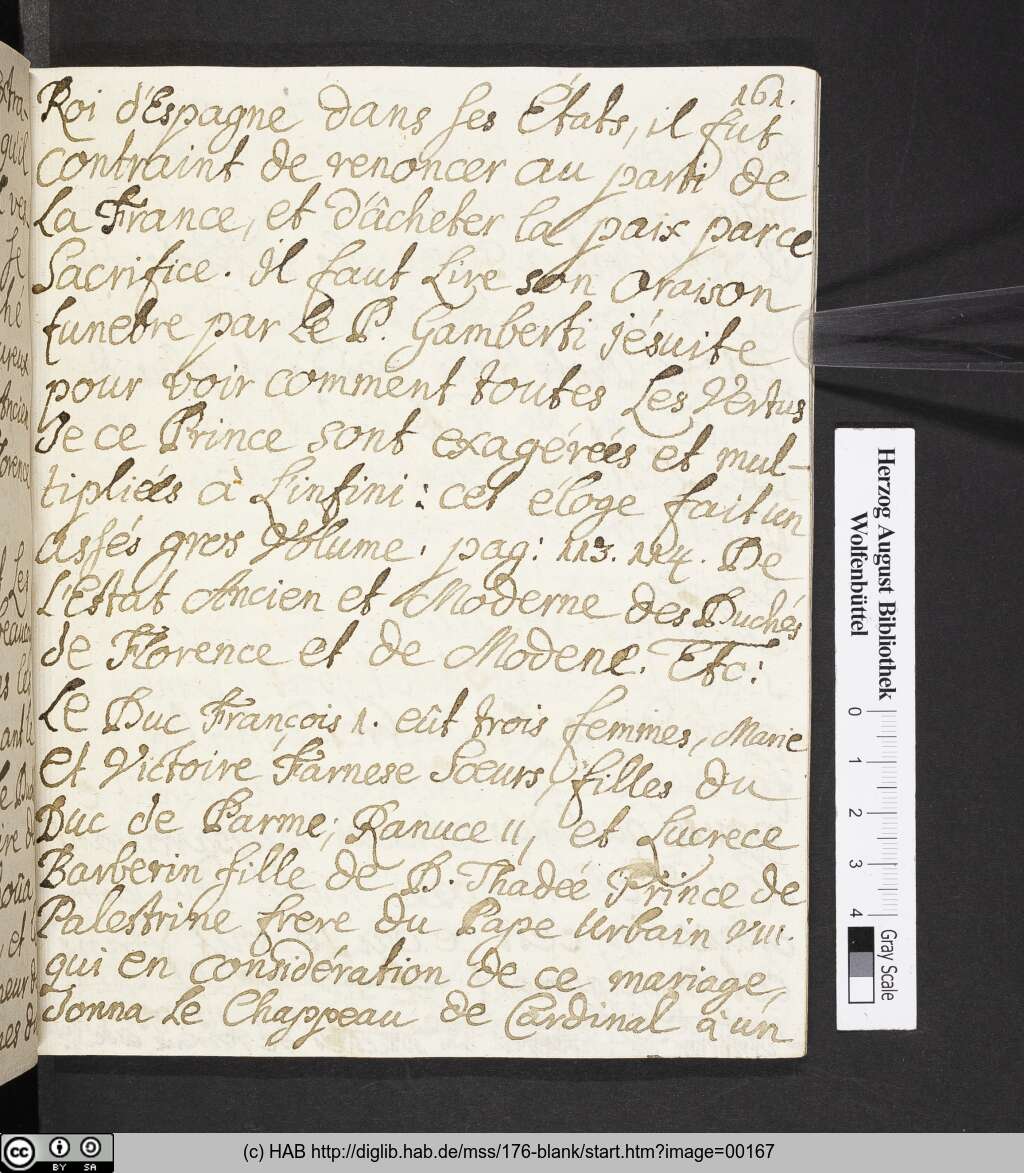 161.
Roi d'Espagne dans ses États, il fut
contraint de renoncer au parti de
La France, et d'âcheter la paix par ce
Sacrifice. Il faut Lire son Oraison
funebre par Le P. Gamberti Jésuite
pour voir comment toutes Les Vertus
de ce Prince sont exagérées et mul-
tipliées à L'infini: cet éloge fait un
assés gros Volume. pag: 113. 114. De
L'Estat Ancien et Moderne des Duchés
de Florence et de Modene. Etc:
Le Duc François 1. eût trois femmes, Marie
et Victoire Farnese Sœurs, filles du
Duc de Parme, Ranuce II, et Lucrece
Barberin fille de D. Thadée Prince de
Palestrine frere du Pape Urbain VIII.
qui en considération de ce mariage,
donna Le Chappeau de Cardinal à un
Herzog August Bibliothek
Wolfenbüttel
0 1 2 3 4
Gray Scale
cc BY SA
(c) HAB http://diglib.hab.de/mss/176-blank/start.htm?image=00167